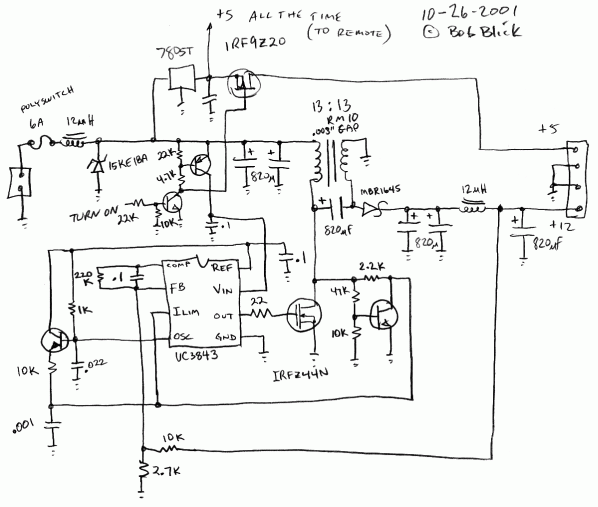 +5 ALL THE TIME
(TO REMOTE)
10-26-2001
© Bob Blick
7805T
IRF9Z20
POLYSWITCH
6A
12µH
13:13
RM10
.003" GAP
+5
15KE18A
22K
4.7K
+
820µ
+
MBR1645
12µH
TURN ON
22K
10K
.1
+
820µF
+
+
820µ
+
820µF
+12
.1
220
K
.1
COMP
REF
FB
VIN
ILIM
OUT
OSC
GND
UC3843
22
2.2K
47K
10K
1K
IRFZ44N
10K
.022
.001
10K
2.7K